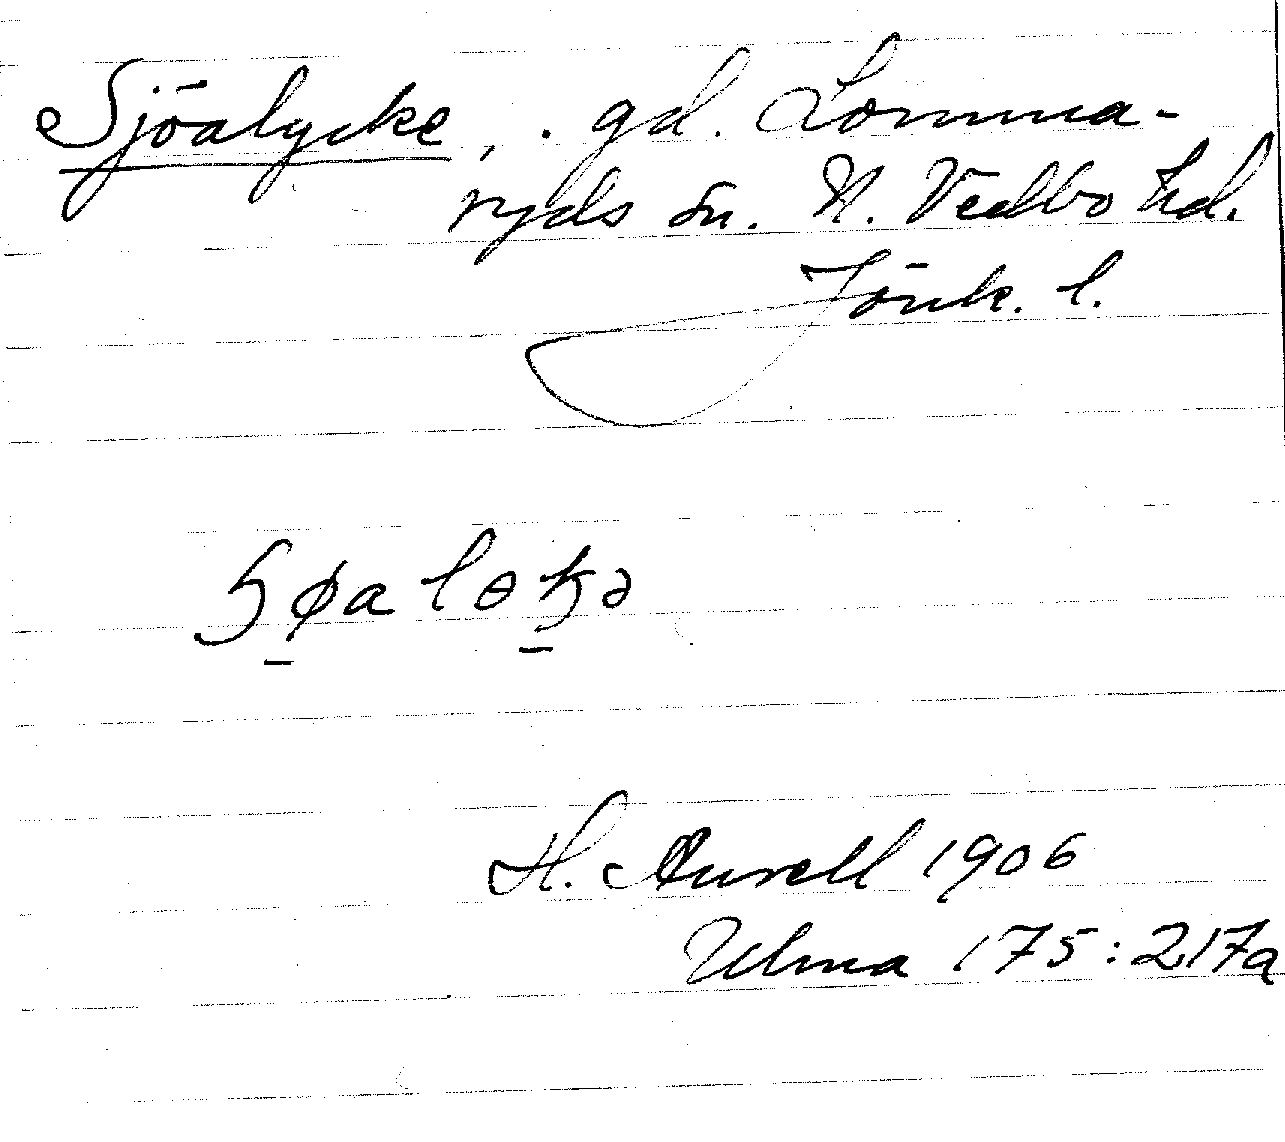 Sjöalycke, . gd. Lomma-
ryds sn. N. Vedbo hd.
Jönk. l.
ɧøaləꞣə
H. Aurell 1906
Ulma 175:217a